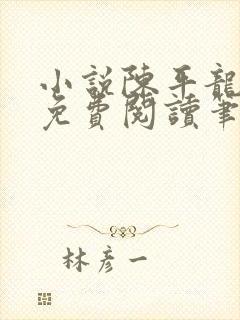 小說陳平龍
免費閱讀筆
林彥一